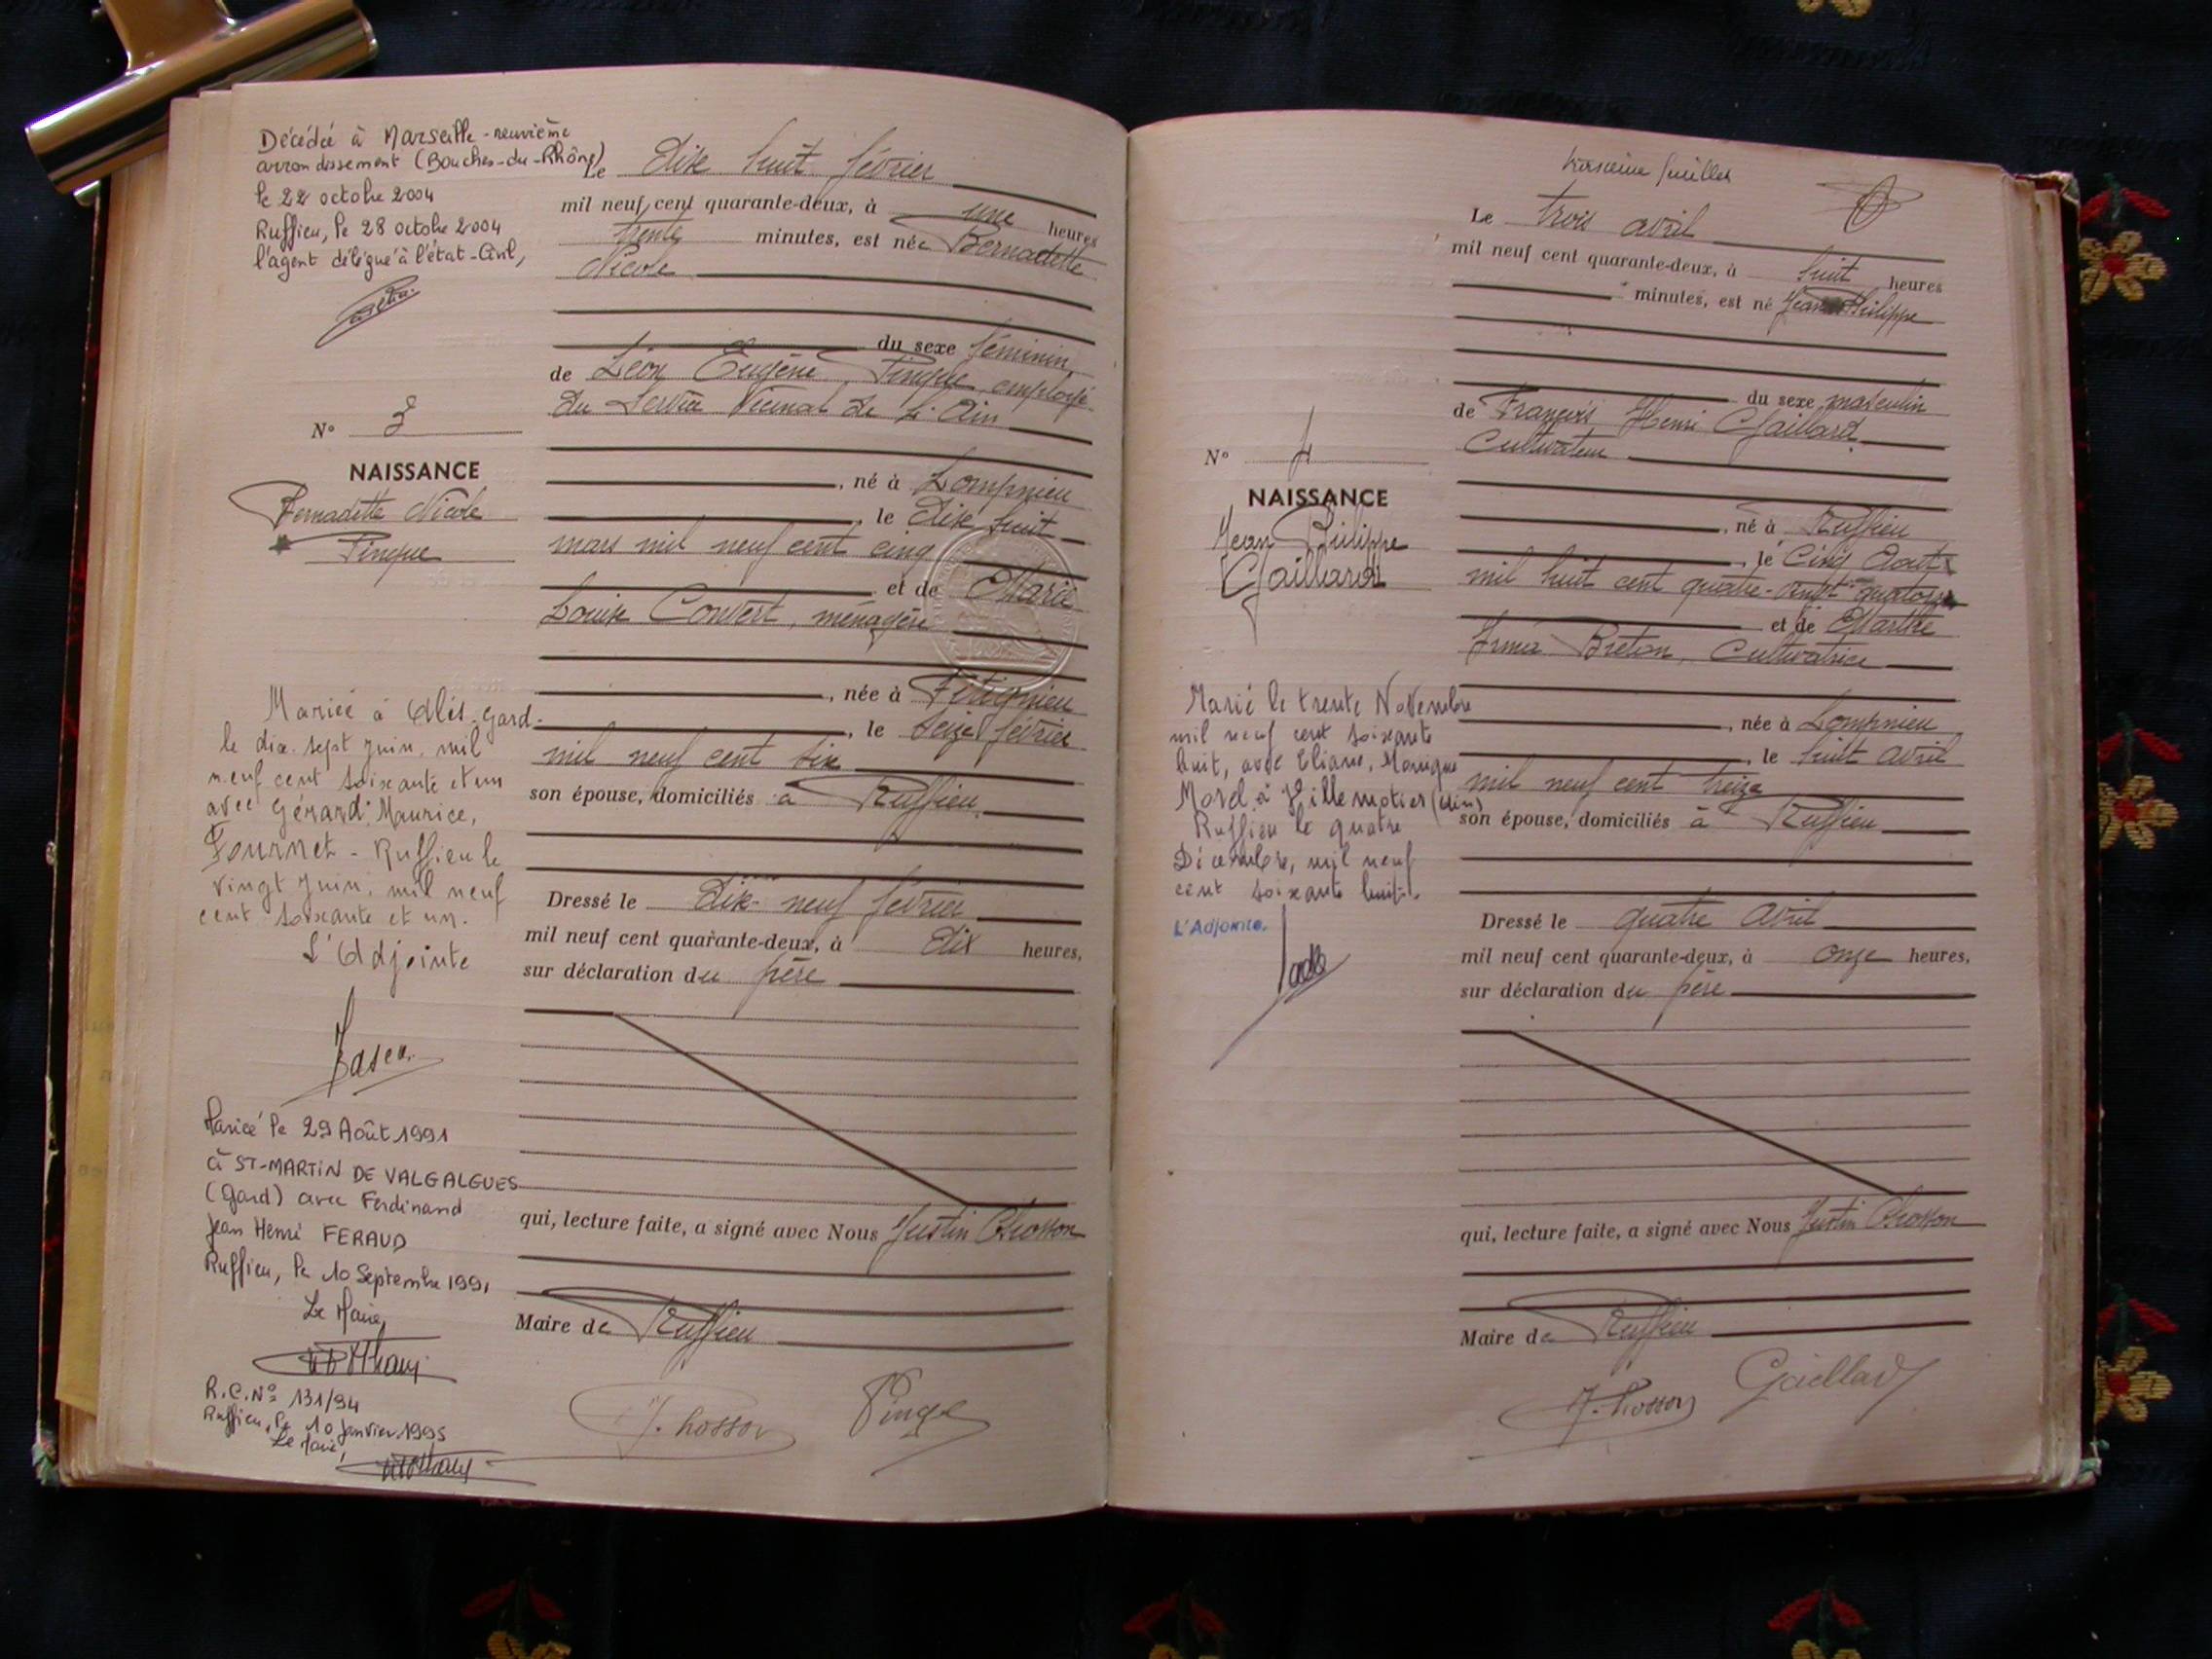 Décédée à Marseille - neuvième
arrondissement (Bouches-du-Rhône)
le 22 octobre 2004
Ruffieu, le 28 octobre 2004
l'agent délégué à l'état-Civil,
N° 3
NAISSANCE
Bernadette Nicole
Pingue
Mariée à Alès. Gard.
le dix. sept Juin. mil
neuf cent soixante et un
avec Gérard. Maurice,
Fournet - Ruffieu le
vingt Juin. mil neuf
cent soixante et un.
L'Adjointe
Mariée le 29 Août 1991
à ST-MARTIN DE VALGALGUES
(Gard) avec Ferdinand
Jean Henri FERAUD
Ruffieu, le 10 Septembre 1991
Le Maire,
R.C. N° 131/94
Ruffieu, le 10 janvier 1995
Le Maire,
Le dix huit février
mil neuf cent quarante-deux, à une heures
trente minutes, est née Bernadette
Nicole
du sexe féminin,
de Léon Eugène Pingue, employé
du Service Vicinal de l'Ain
, né à Lompnieu
, le dix huit
mars mil neuf cent cinq
et de Marie
Louise Convert, ménagère
, née à
, le seize février
mil neuf cent six
son épouse, domiciliés à Ruffieu.
Dressé le dix-neuf février
mil neuf cent quarante-deux, à dix heures,
sur déclaration du père
qui, lecture faite, a signé avec Nous Justin Chosson
Maire de Ruffieu
J. Chosson Pingue
troisième feuillet
N° 4
NAISSANCE
Jean Philippe
Gaillard
Marié le trente Novembre
mil neuf cent soixante
huit, avec Eliane, Monique
Morel à Villemotier (Ain)
Ruffieu le quatre
Décembre, mil neuf
cent soixante huit.
L'Adjointe,
Le trois avril
mil neuf cent quarante-deux, à huit heures
minutes, est né Jean Philippe
du sexe masculin
de François Henri Gaillard
Cultivateur
, né à Ruffieu
, le Cinq Août
mil huit cent quatre-vingt-quatorze
et de Marthe
Irma Breton, Cultivatrice
, née à Lompnieu
, le huit avril
mil neuf cent treize
son épouse, domiciliés à Ruffieu
Dressé le quatre avril
mil neuf cent quarante-deux, à onze heures,
sur déclaration du père
qui, lecture faite, a signé avec Nous Justin Chosson
Maire de Ruffieu
J. Chosson Gaillard